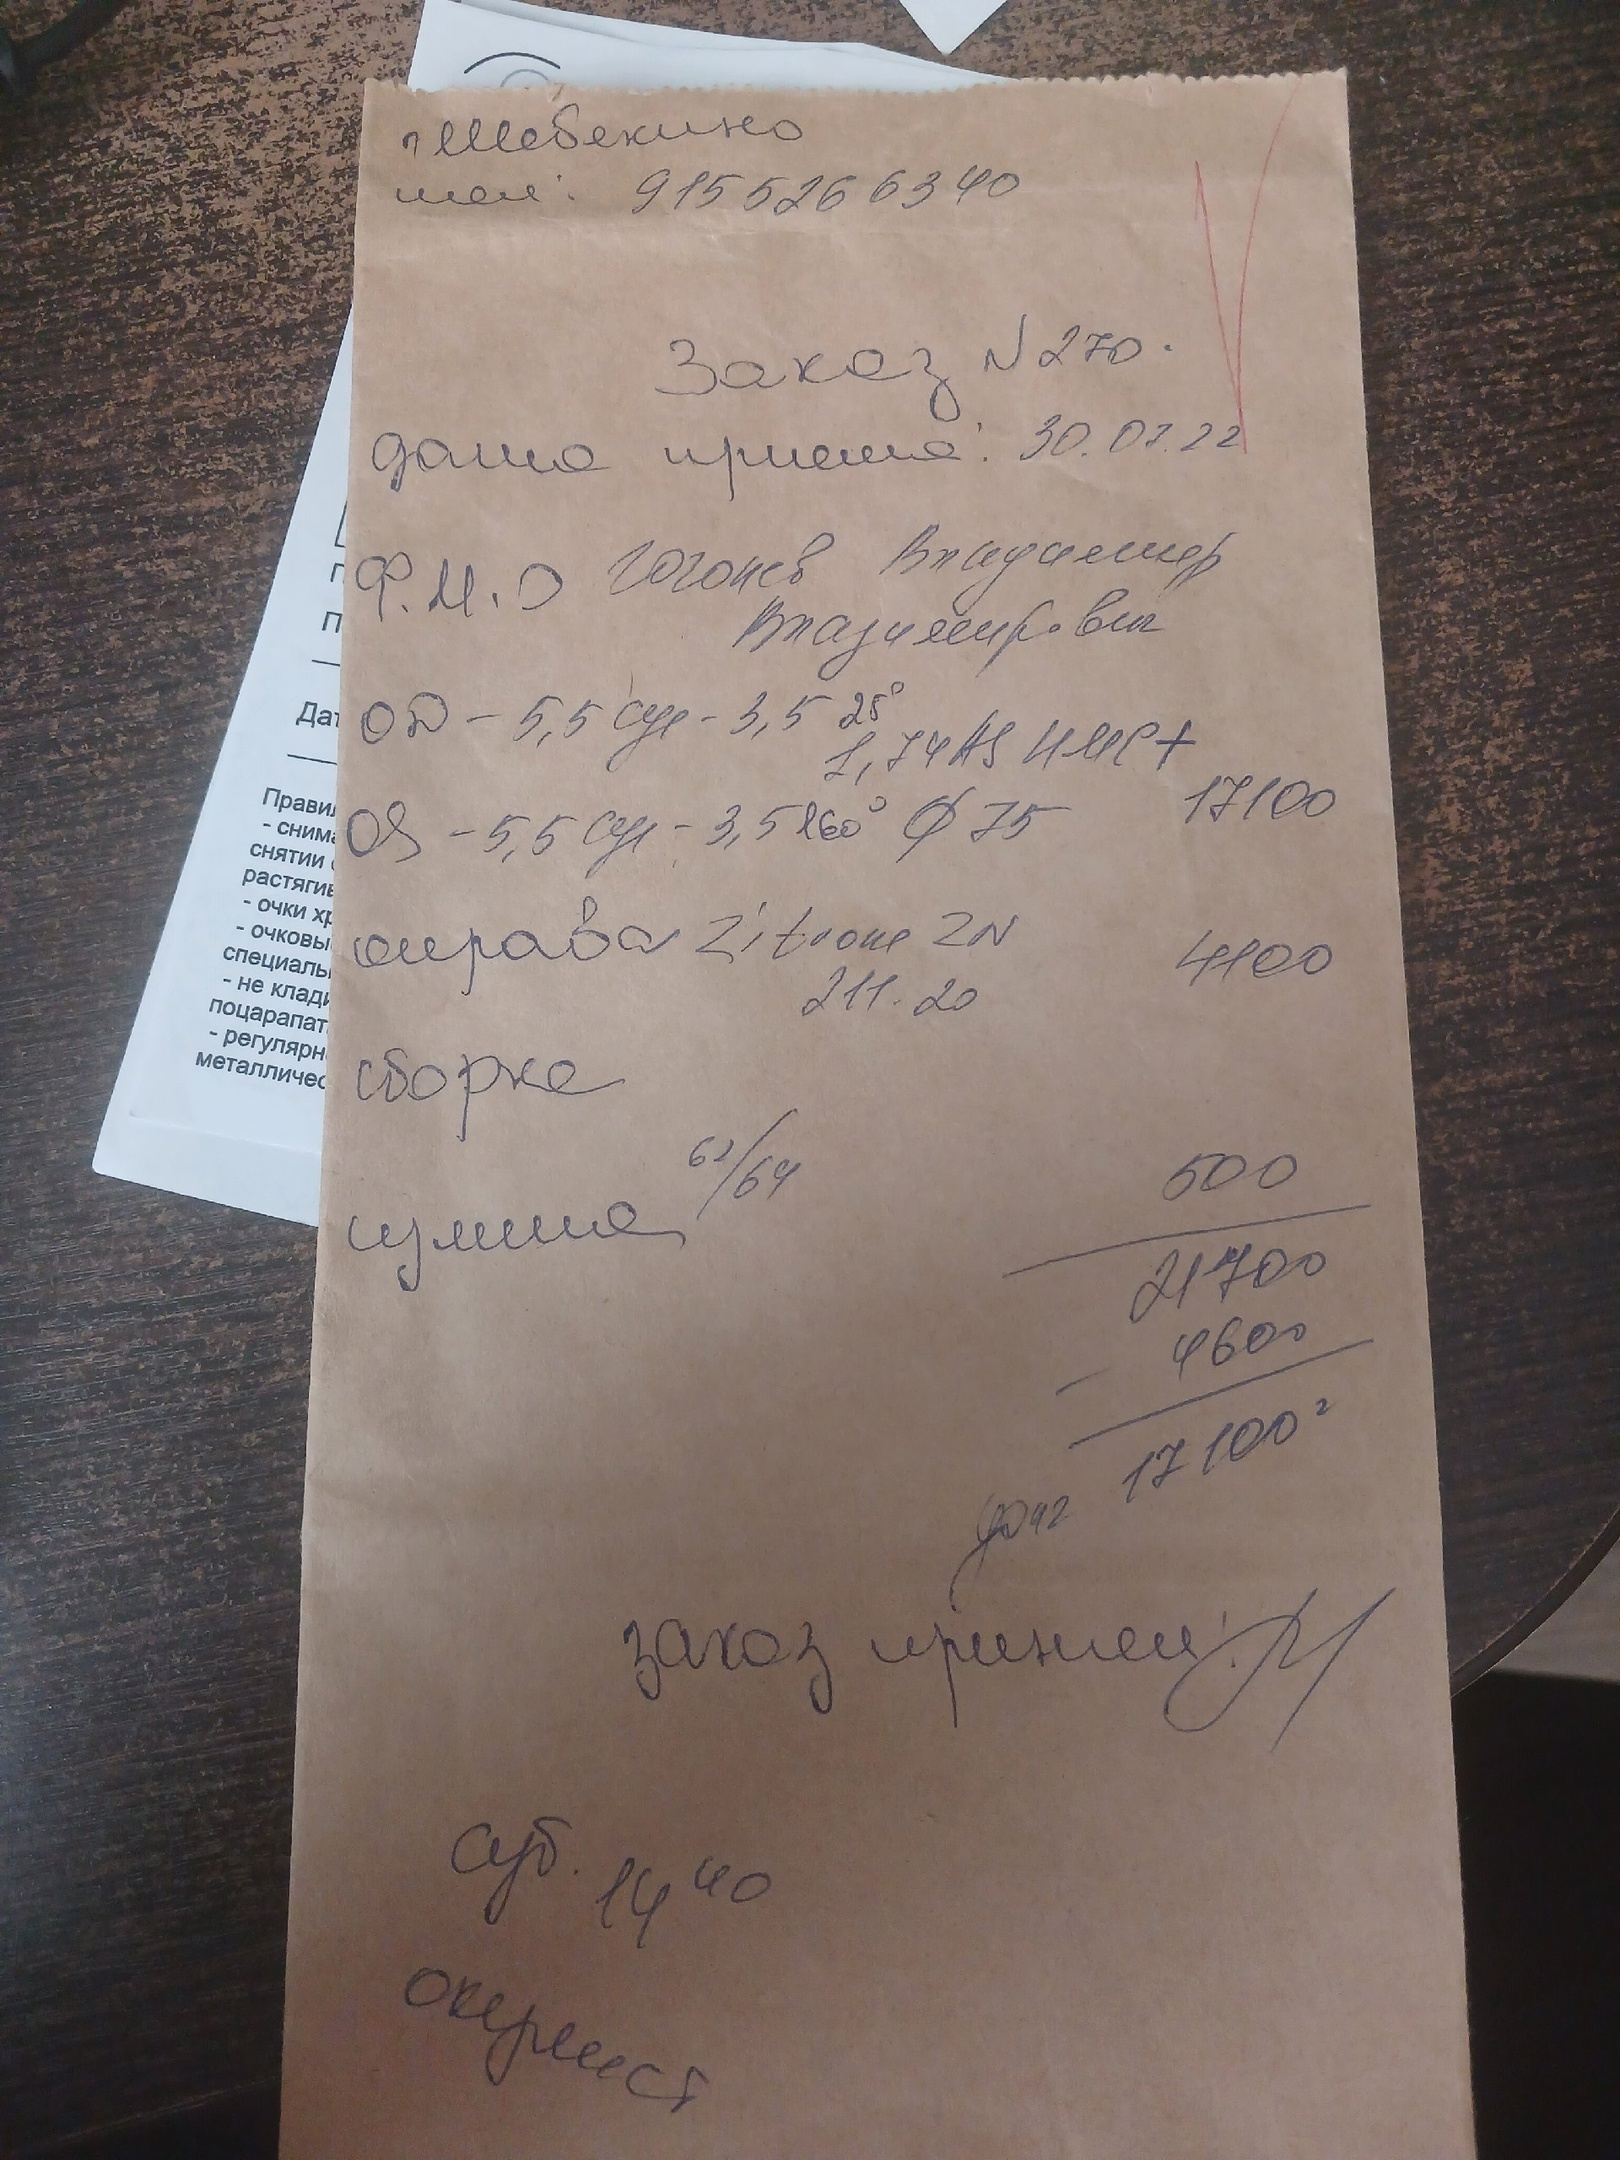 г Шебекино
тел: 915 526 63 40
Заказ N 270.
дата приема: 30.07.22
Ф.И.О Гогонев Владимир
Владимирович
OD - 5,5 cyl - 3,5 25°
1,74 AS HMC+
OS - 5,5 cyl - 3,5 160° Ø 75
17100
оправа Zitrone ZN
4100
211. 20
сборка
62/64
500
сумма
21700
- 4600
17100
заказ принял:
суб. 14 40
окулист
Дат
Правил
- снима
снятии
растягив
- очки хр
- очковы
специаль
- не клади
поцарапат
- регулярн
металличес